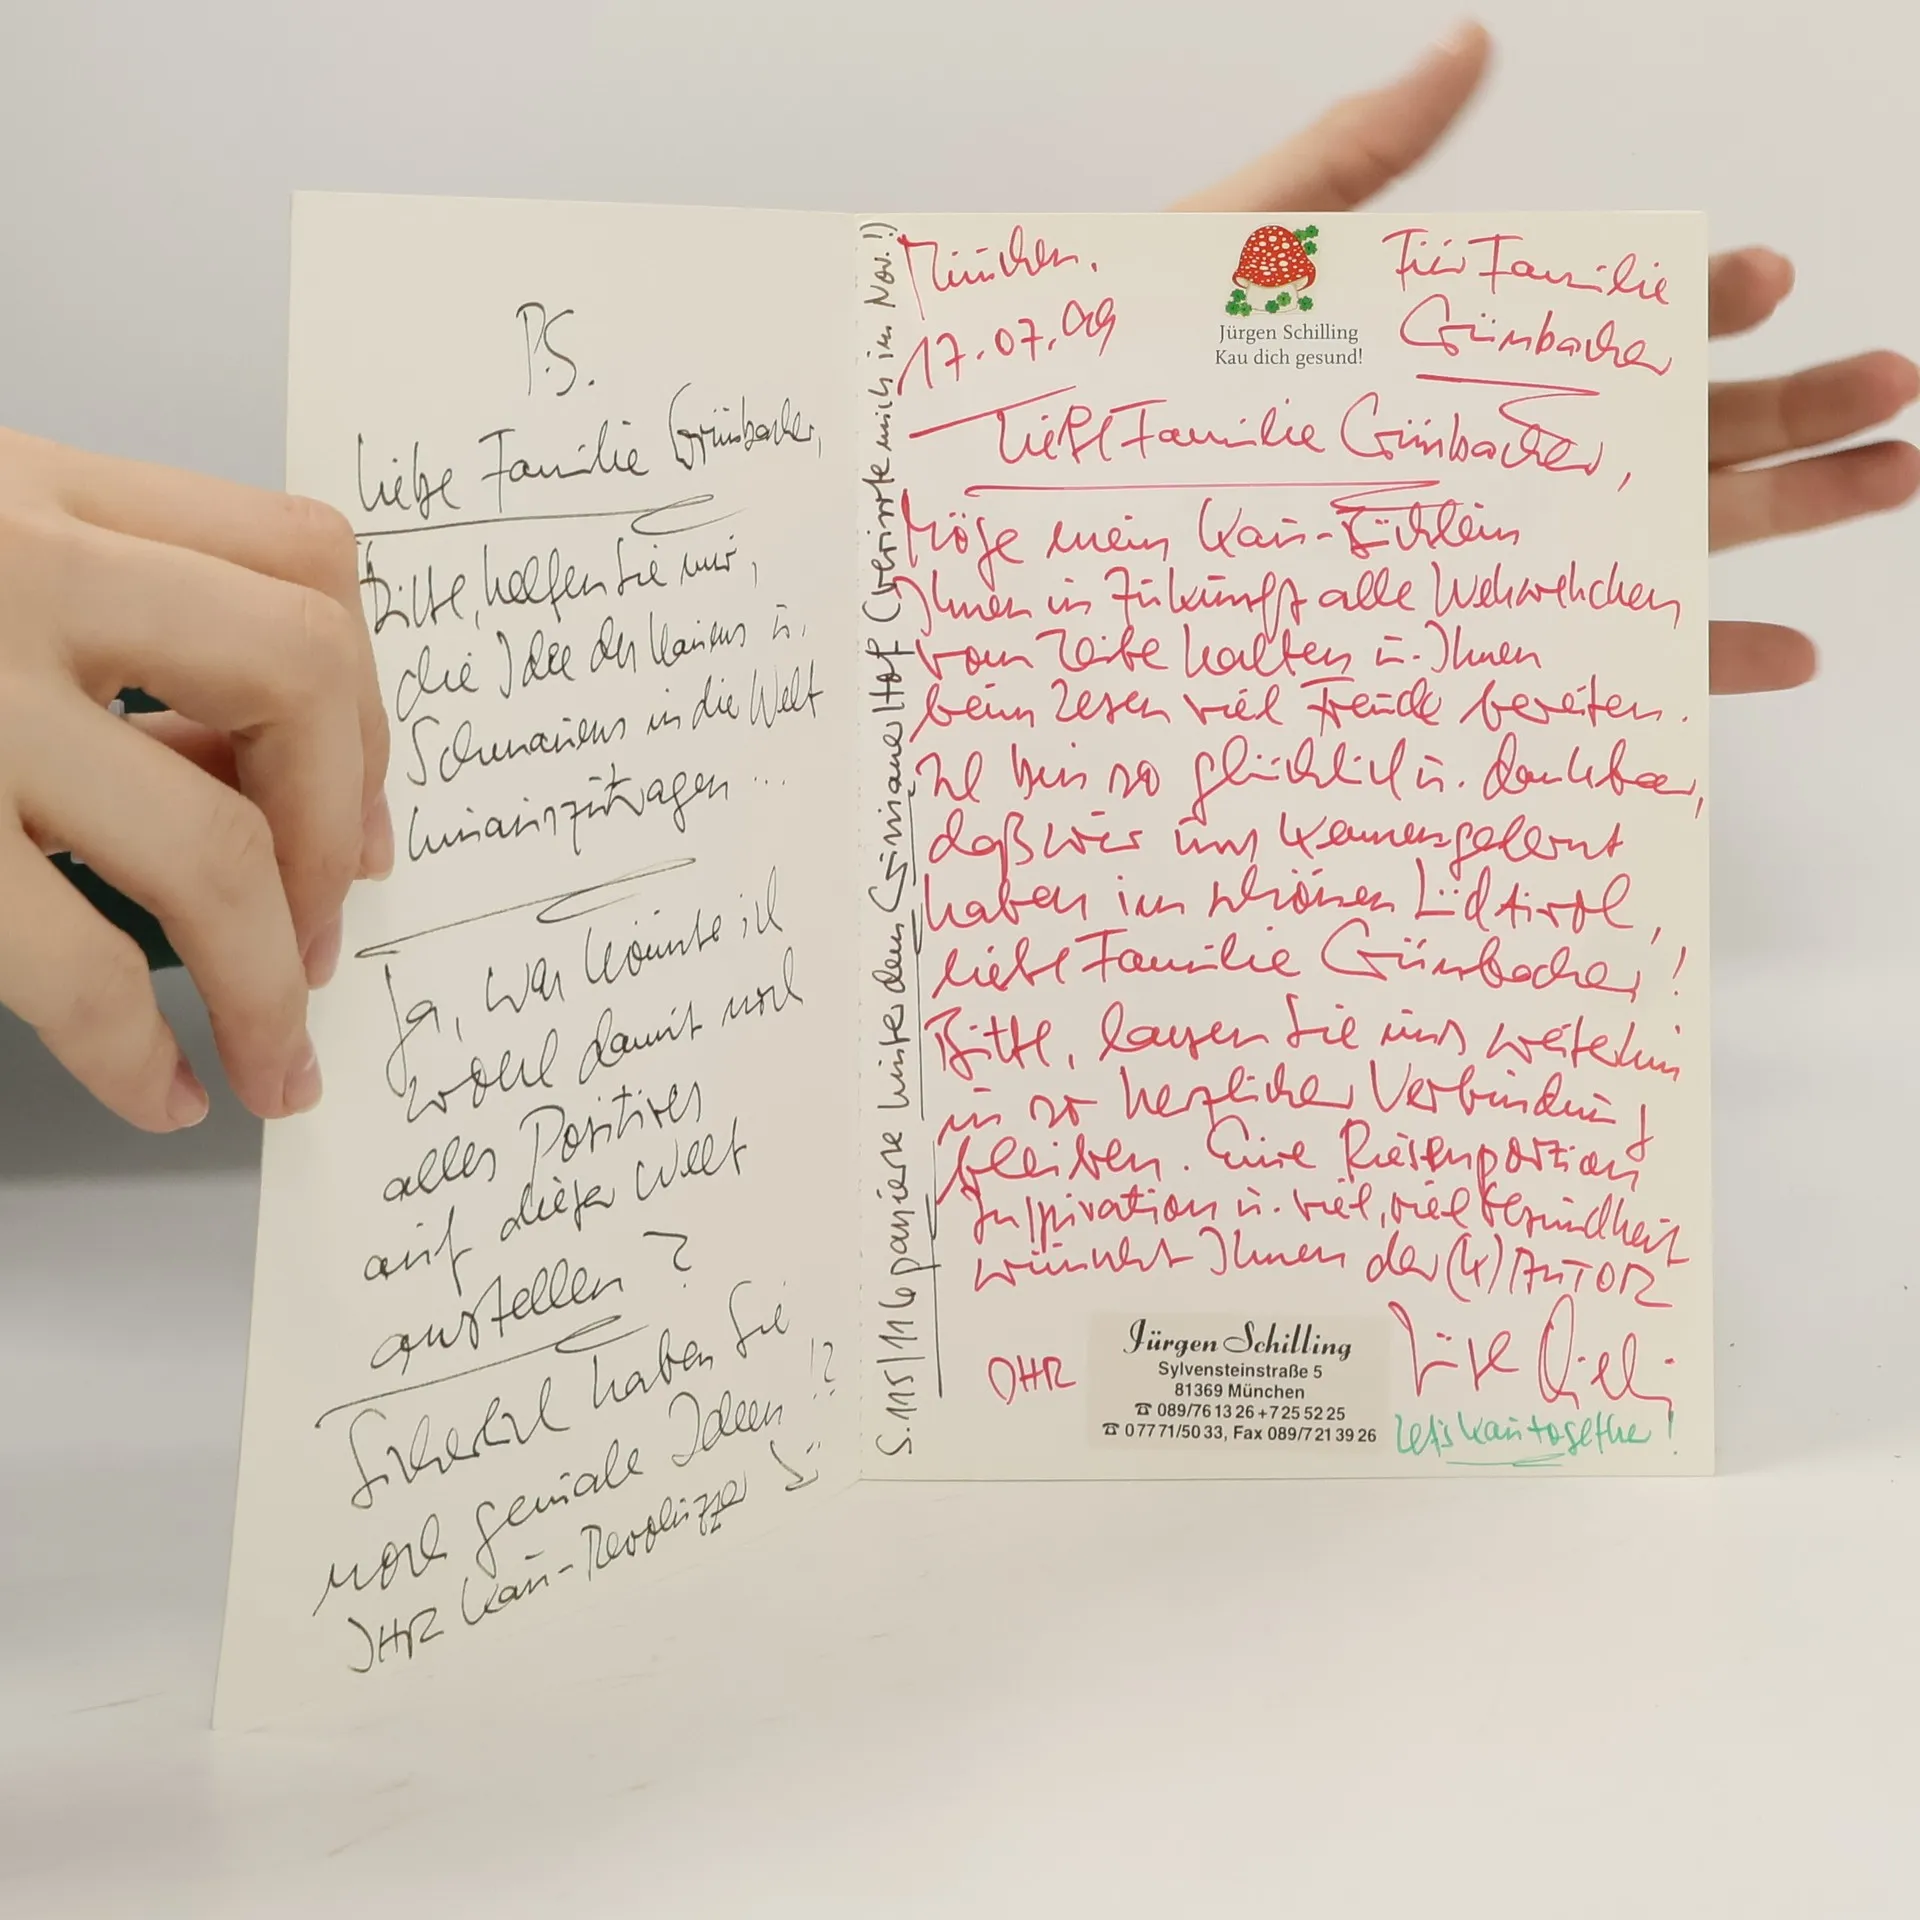 P.S.
Liebe Familie Grünbacher,
Bitte, helfen Sie mir,
die Idee des Kauens u.
Schmauens in die Welt
hinauszutragen ...
Ja, was könnte ich
wohl damit noch
alles Positives
auf dieser Welt
anstellen?
Sicherlich haben Sie
noch geniale Ideen!?
IHR Kau-Revoluzzer
S. 115/116 paniere hinter dem Grünauerhof (verirrte mich im Nov.!)
München,
17.07.09
Jürgen Schilling
Kau dich gesund!
Für Familie
Grünbacher
Liebe Familie Grünbacher,
Möge mein Kau-Büchlein
Ihnen in Zukunft alle Wehwehchen
vom Leibe halten u. Ihnen
beim Lesen viel Freude bereiten.
Ich bin so glücklich u. dankbar,
daß wir uns kennengelernt
haben im schönen Südtirol,
liebe Familie Grünbacher!
Bitte, lassen Sie uns weiterhin
in so herzlicher Verbindung
bleiben. Eine Riesenportion
Inspiration u. viel, viel Gesundheit
wünscht Ihnen der (K)AUTOR
IHR
Jürgen Schilling
Sylvensteinstraße 5
81369 München
☎ 089/76 13 26 + 7 25 52 25
☎ 0 77 71/50 33, Fax 089/7 21 39 26
Let's kau together!